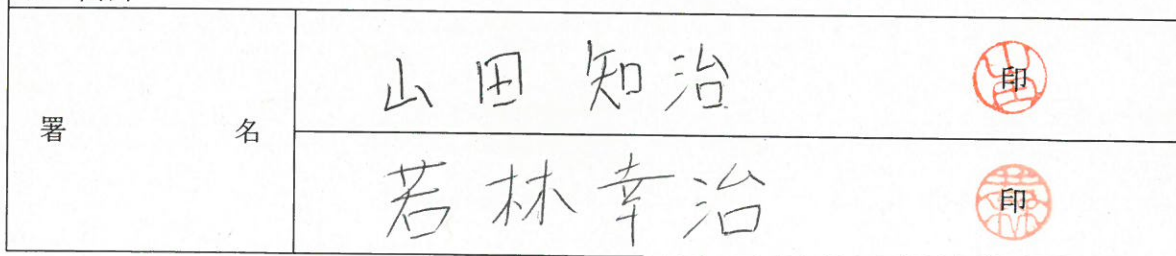 署名
山田 知治 印
若林幸治 印